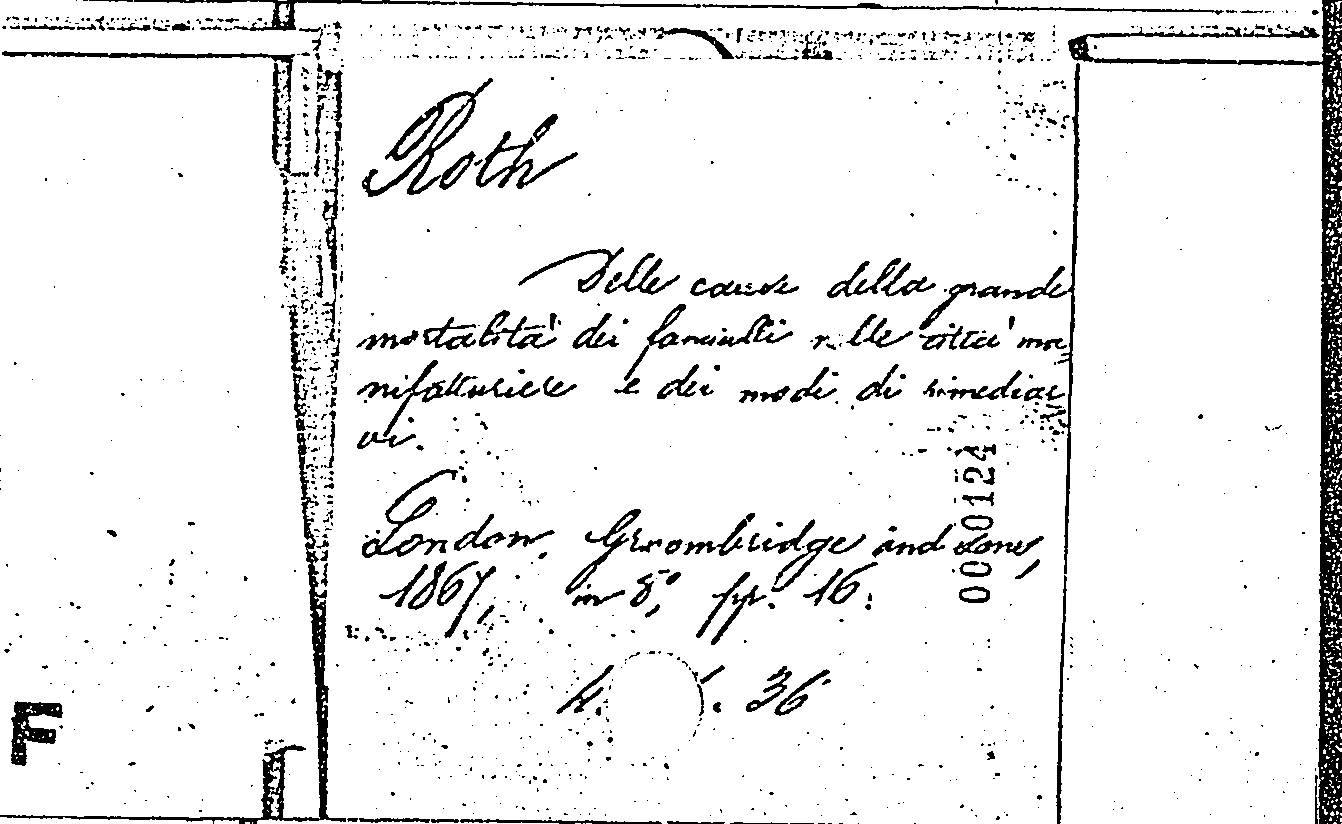 Roth
Delle cause della grande
mortalità dei fanciulli nelle città ma
nifatturiere e dei modi di rimediar
vi.
London, Groombridge and Sons,
1867, in 8°, pp. 16.
4. . 36
000124
F